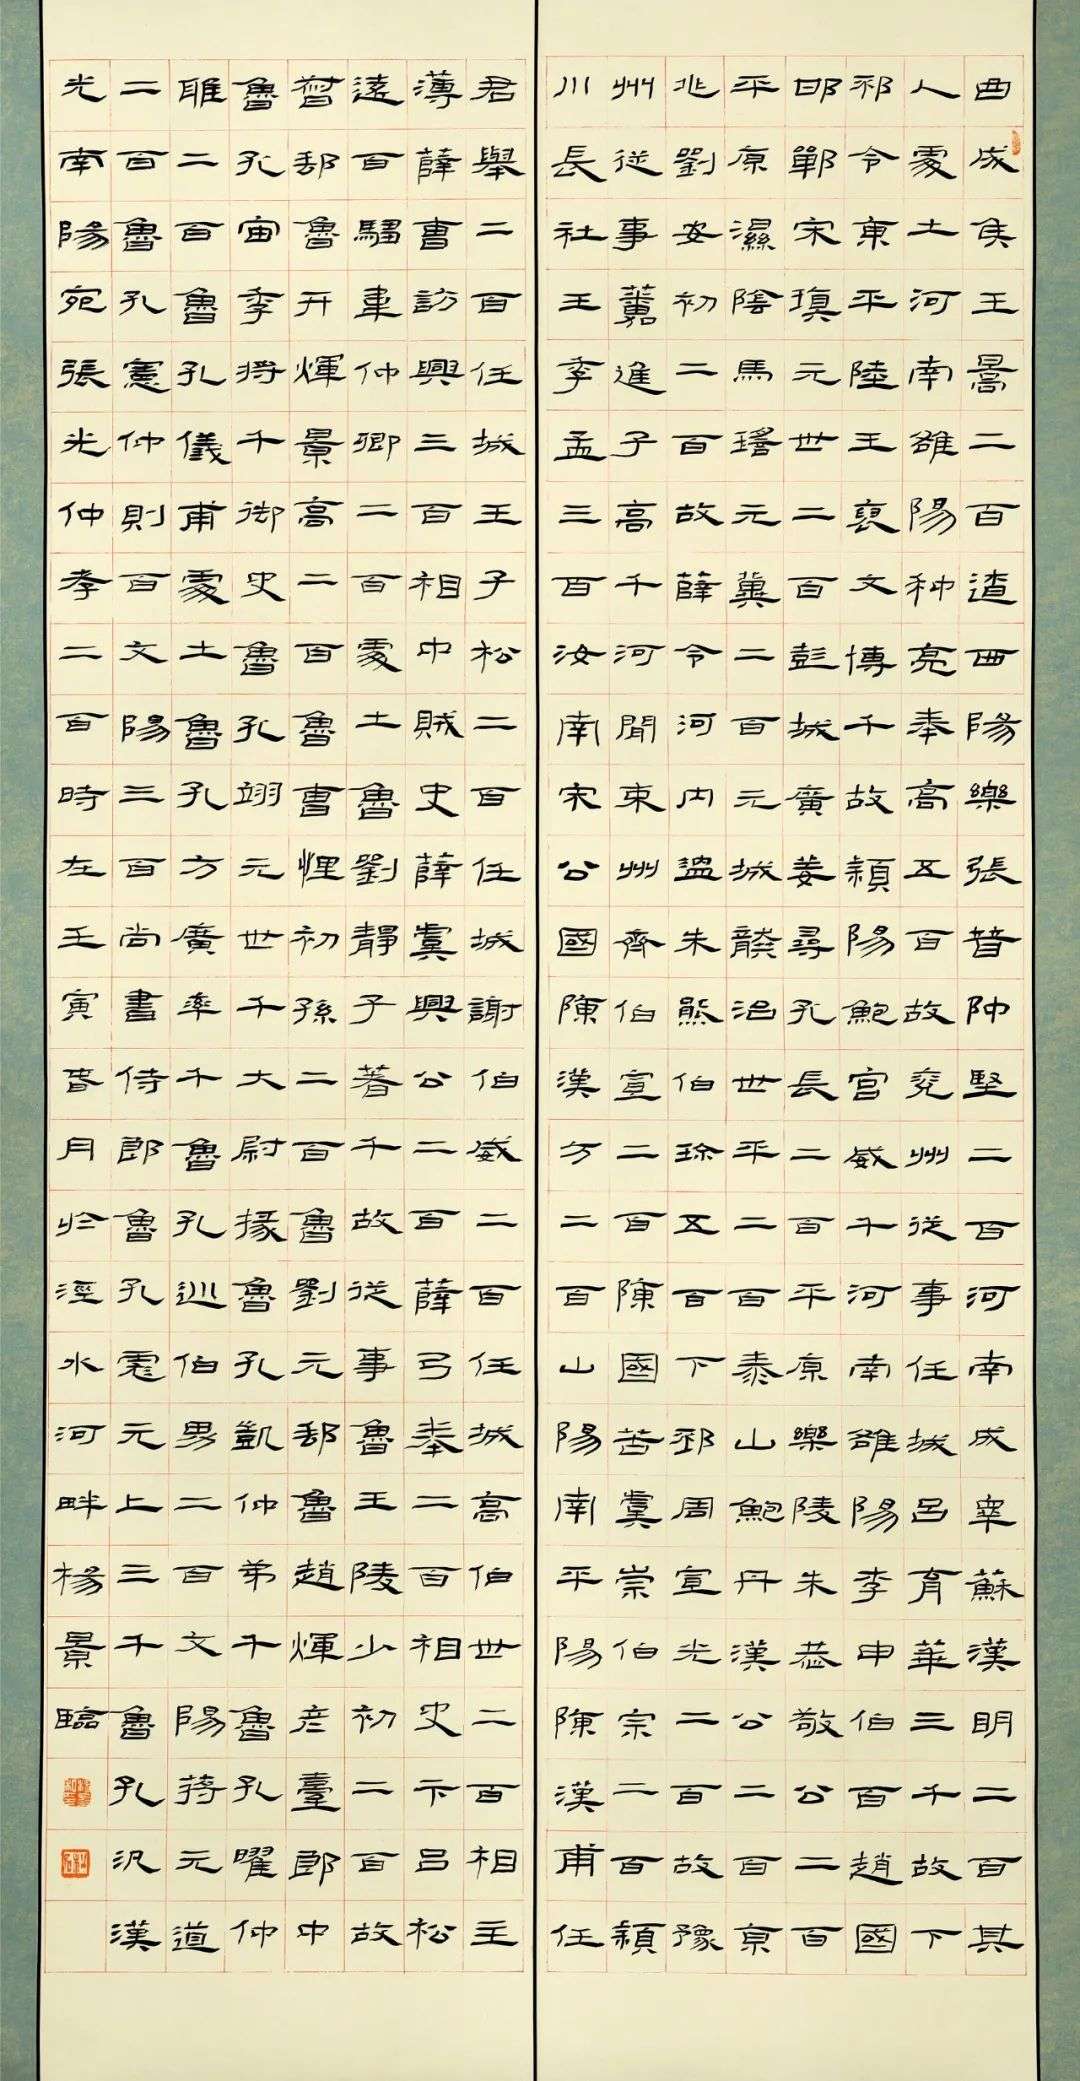 曲成侯王暠二百遼西陽樂張普仲堅二百河南成睪蘇漢明二百其
人處士河南雒陽种亮奉高五百故兖州從事任城呂育華三千故下
邳令東平陸王褒文博千故潁陽鮑宮威千河南雒陽李申伯百趙國
邯鄲宋瑱元世二百彭城廣姜尋孔長二百平原樂陵朱恭敬公二百
平原濕陰馬瑤元冀二百元城龔治世平二百泰山鮑丹漢公二百京
兆劉安初二百故薛令河內溫朱熊伯珍五百下邳周宣光二百故豫
州從事蕃加進子高千河間束州齊伯宣二百陳國苦虞崇伯宗二百潁
川長社王季孟三百汝南宋公國陳漢方二百山陽南平陽陳漢甫任
君舉二百任城王子松二百任城謝伯威二百任城高伯世二百相主
薄薛曹訪興三百相中賊史薛虞興公二百薛弓奉二百相史卞呂松
遠百騶韋仲卿二百處士魯劉靜子著千故從事魯王陵少初二百故
督郵魯开煇景高二百魯曹悝初孫二百魯劉元郵魯趙煇彥臺郎中
魯孔宙季將千御史魯孔翊元世千大尉掾魯孔凱仲弟千魯孔曜仲
雅二百魯孔儀甫處士魯孔方廣率千魯孔巡伯男二百文陽蔣元道
二百魯孔憲仲則百文陽三百尚書侍郎魯孔彪元上三千魯孔汎漢
光南陽宛張光仲孝二百時在壬寅春月於涇水河畔楊景臨